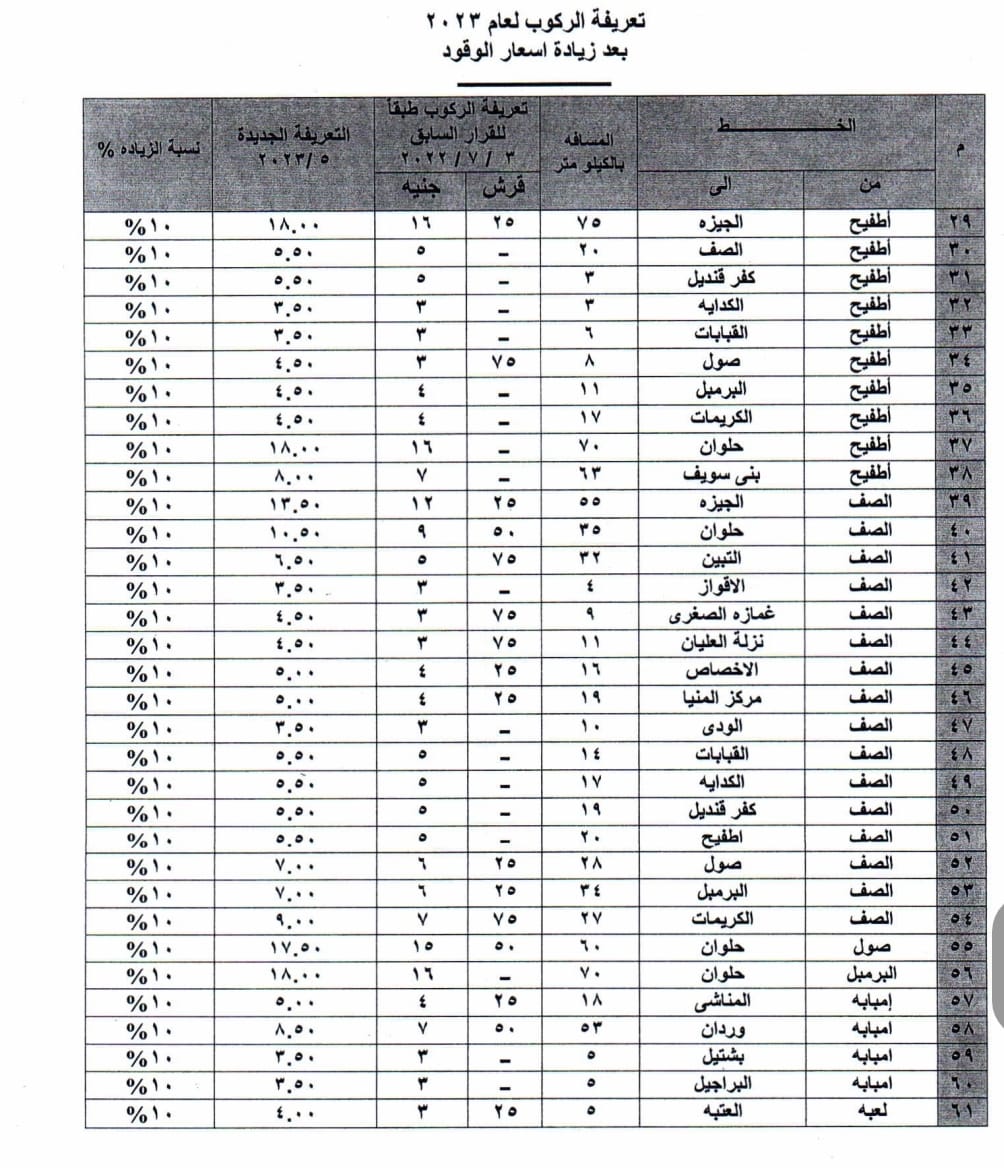 تعريفة الركوب لعام ٢٠٢٣
بعد زيادة اسعار الوقود
م الخـــــــــــط المسافه بالكيلو متر تعريفة الركوب طبقاً للقرار السابق ٣ / ٧ / ٢٠٢٢ التعريفة الجديدة ٥ /٢٠٢٣ نسبة الزياده %
من الى قرش جنيه
٢٩ أطفيح الجيزه ٧٥ ٢٥ ١٦ ١٨.٠٠ ١٠%
٣٠ أطفيح الصف ٢٠ – ٥ ٥.٥٠ ١٠%
٣١ أطفيح كفر قنديل ٣ – ٥ ٥.٥٠ ١٠%
٣٢ أطفيح الكدايه ٣ – ٣ ٣.٥٠ ١٠%
٣٣ أطفيح القبابات ٦ – ٣ ٣.٥٠ ١٠%
٣٤ أطفيح صول ٨ ٧٥ ٣ ٤.٥٠ ١٠%
٣٥ أطفيح البرمبل ١١ – ٤ ٤.٥٠ ١٠%
٣٦ أطفيح الكريمات ١٧ – ٤ ٤.٥٠ ١٠%
٣٧ أطفيح حلوان ٧٠ – ١٦ ١٨.٠٠ ١٠%
٣٨ أطفيح بنى سويف ٦٣ – ٧ ٨.٠٠ ١٠%
٣٩ الصف الجيزه ٥٥ ٢٥ ١٢ ١٣.٥٠ ١٠%
٤٠ الصف حلوان ٣٥ ٥٠ ٩ ١٠.٥٠ ١٠%
٤١ الصف التبين ٣٢ ٧٥ ٥ ٦.٥٠ ١٠%
٤٢ الصف الاقواز ٤ – ٣ ٣.٥٠ ١٠%
٤٣ الصف غمازه الصغرى ٩ ٧٥ ٣ ٤.٥٠ ١٠%
٤٤ الصف نزلة العليان ١١ ٧٥ ٣ ٤.٥٠ ١٠%
٤٥ الصف الاخصاص ١٦ ٢٥ ٤ ٥.٠٠ ١٠%
٤٦ الصف مركز المنيا ١٩ ٢٥ ٤ ٥.٠٠ ١٠%
٤٧ الصف الودى ١٠ – ٣ ٣.٥٠ ١٠%
٤٨ الصف القبابات ١٤ – ٥ ٥.٥٠ ١٠%
٤٩ الصف الكدايه ١٧ – ٥ ٥.٥٠ ١٠%
٥٠ الصف كفر قنديل ١٩ – ٥ ٥.٥٠ ١٠%
٥١ الصف اطفيح ٢٠ – ٥ ٥.٥٠ ١٠%
٥٢ الصف صول ٢٨ ٢٥ ٦ ٧.٠٠ ١٠%
٥٣ الصف البرمبل ٣٤ ٢٥ ٦ ٧.٠٠ ١٠%
٥٤ الصف الكريمات ٢٧ ٧٥ ٧ ٩.٠٠ ١٠%
٥٥ صول حلوان ٦٠ ٥٠ ١٥ ١٧.٥٠ ١٠%
٥٦ البرمبل حلوان ٧٠ – ١٦ ١٨.٠٠ ١٠%
٥٧ إمبابه المناشى ١٨ ٢٥ ٤ ٥.٠٠ ١٠%
٥٨ امبابه وردان ٥٣ ٥٠ ٧ ٨.٥٠ ١٠%
٥٩ امبابه بشتيل ٥ – ٣ ٣.٥٠ ١٠%
٦٠ امبابه البراجيل ٥ – ٣ ٣.٥٠ ١٠%
٦١ لعبه العتبه ٥ ٢٥ ٣ ٤.٠٠ ١٠%